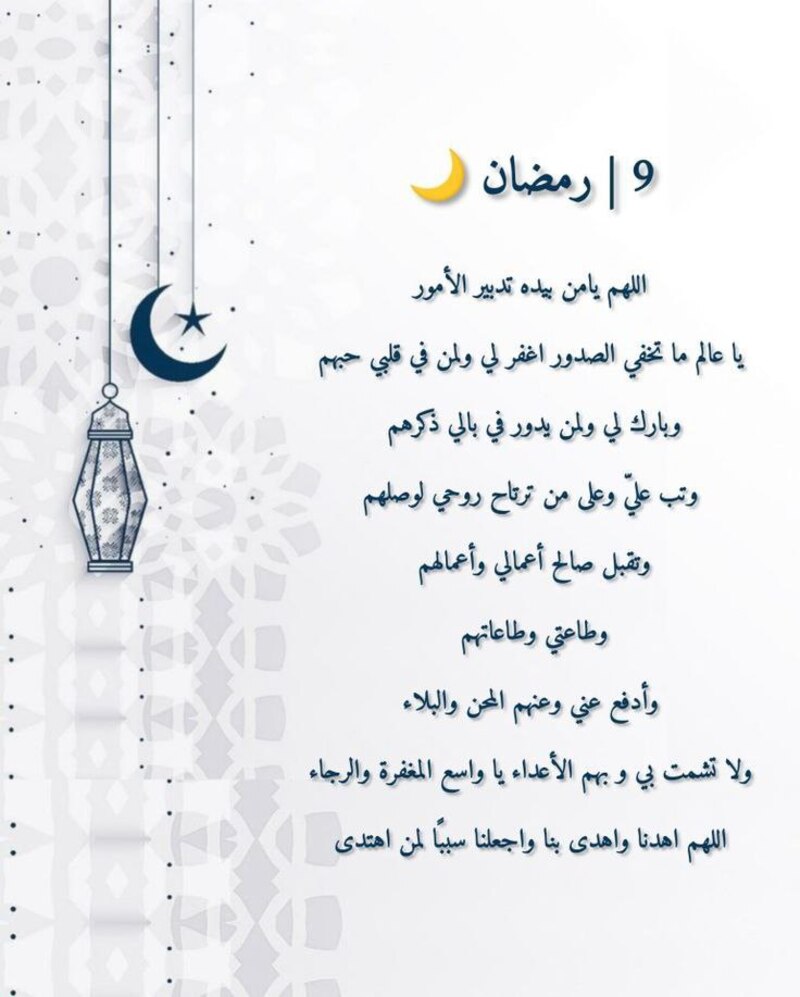 9 | رمضان 🌙
اللهم يامن بيده تدبير الأمور
يا عالم ما تخفي الصدور اغفر لي ولمن في قلبي حبهم
وبارك لي ولمن يدور في بالي ذكرهم
وتب عليّ وعلى من ترتاح روحي لوصلهم
وتقبل صالح أعمالي وأعمالهم
وطاعتي وطاعاتهم
وأدفع عني وعنهم المحن والبلاء
ولا تشمت بي و بهم الأعداء يا واسع المغفرة والرجاء
اللهم اهدنا واهدى بنا واجعلنا سببًا لمن اهتدى